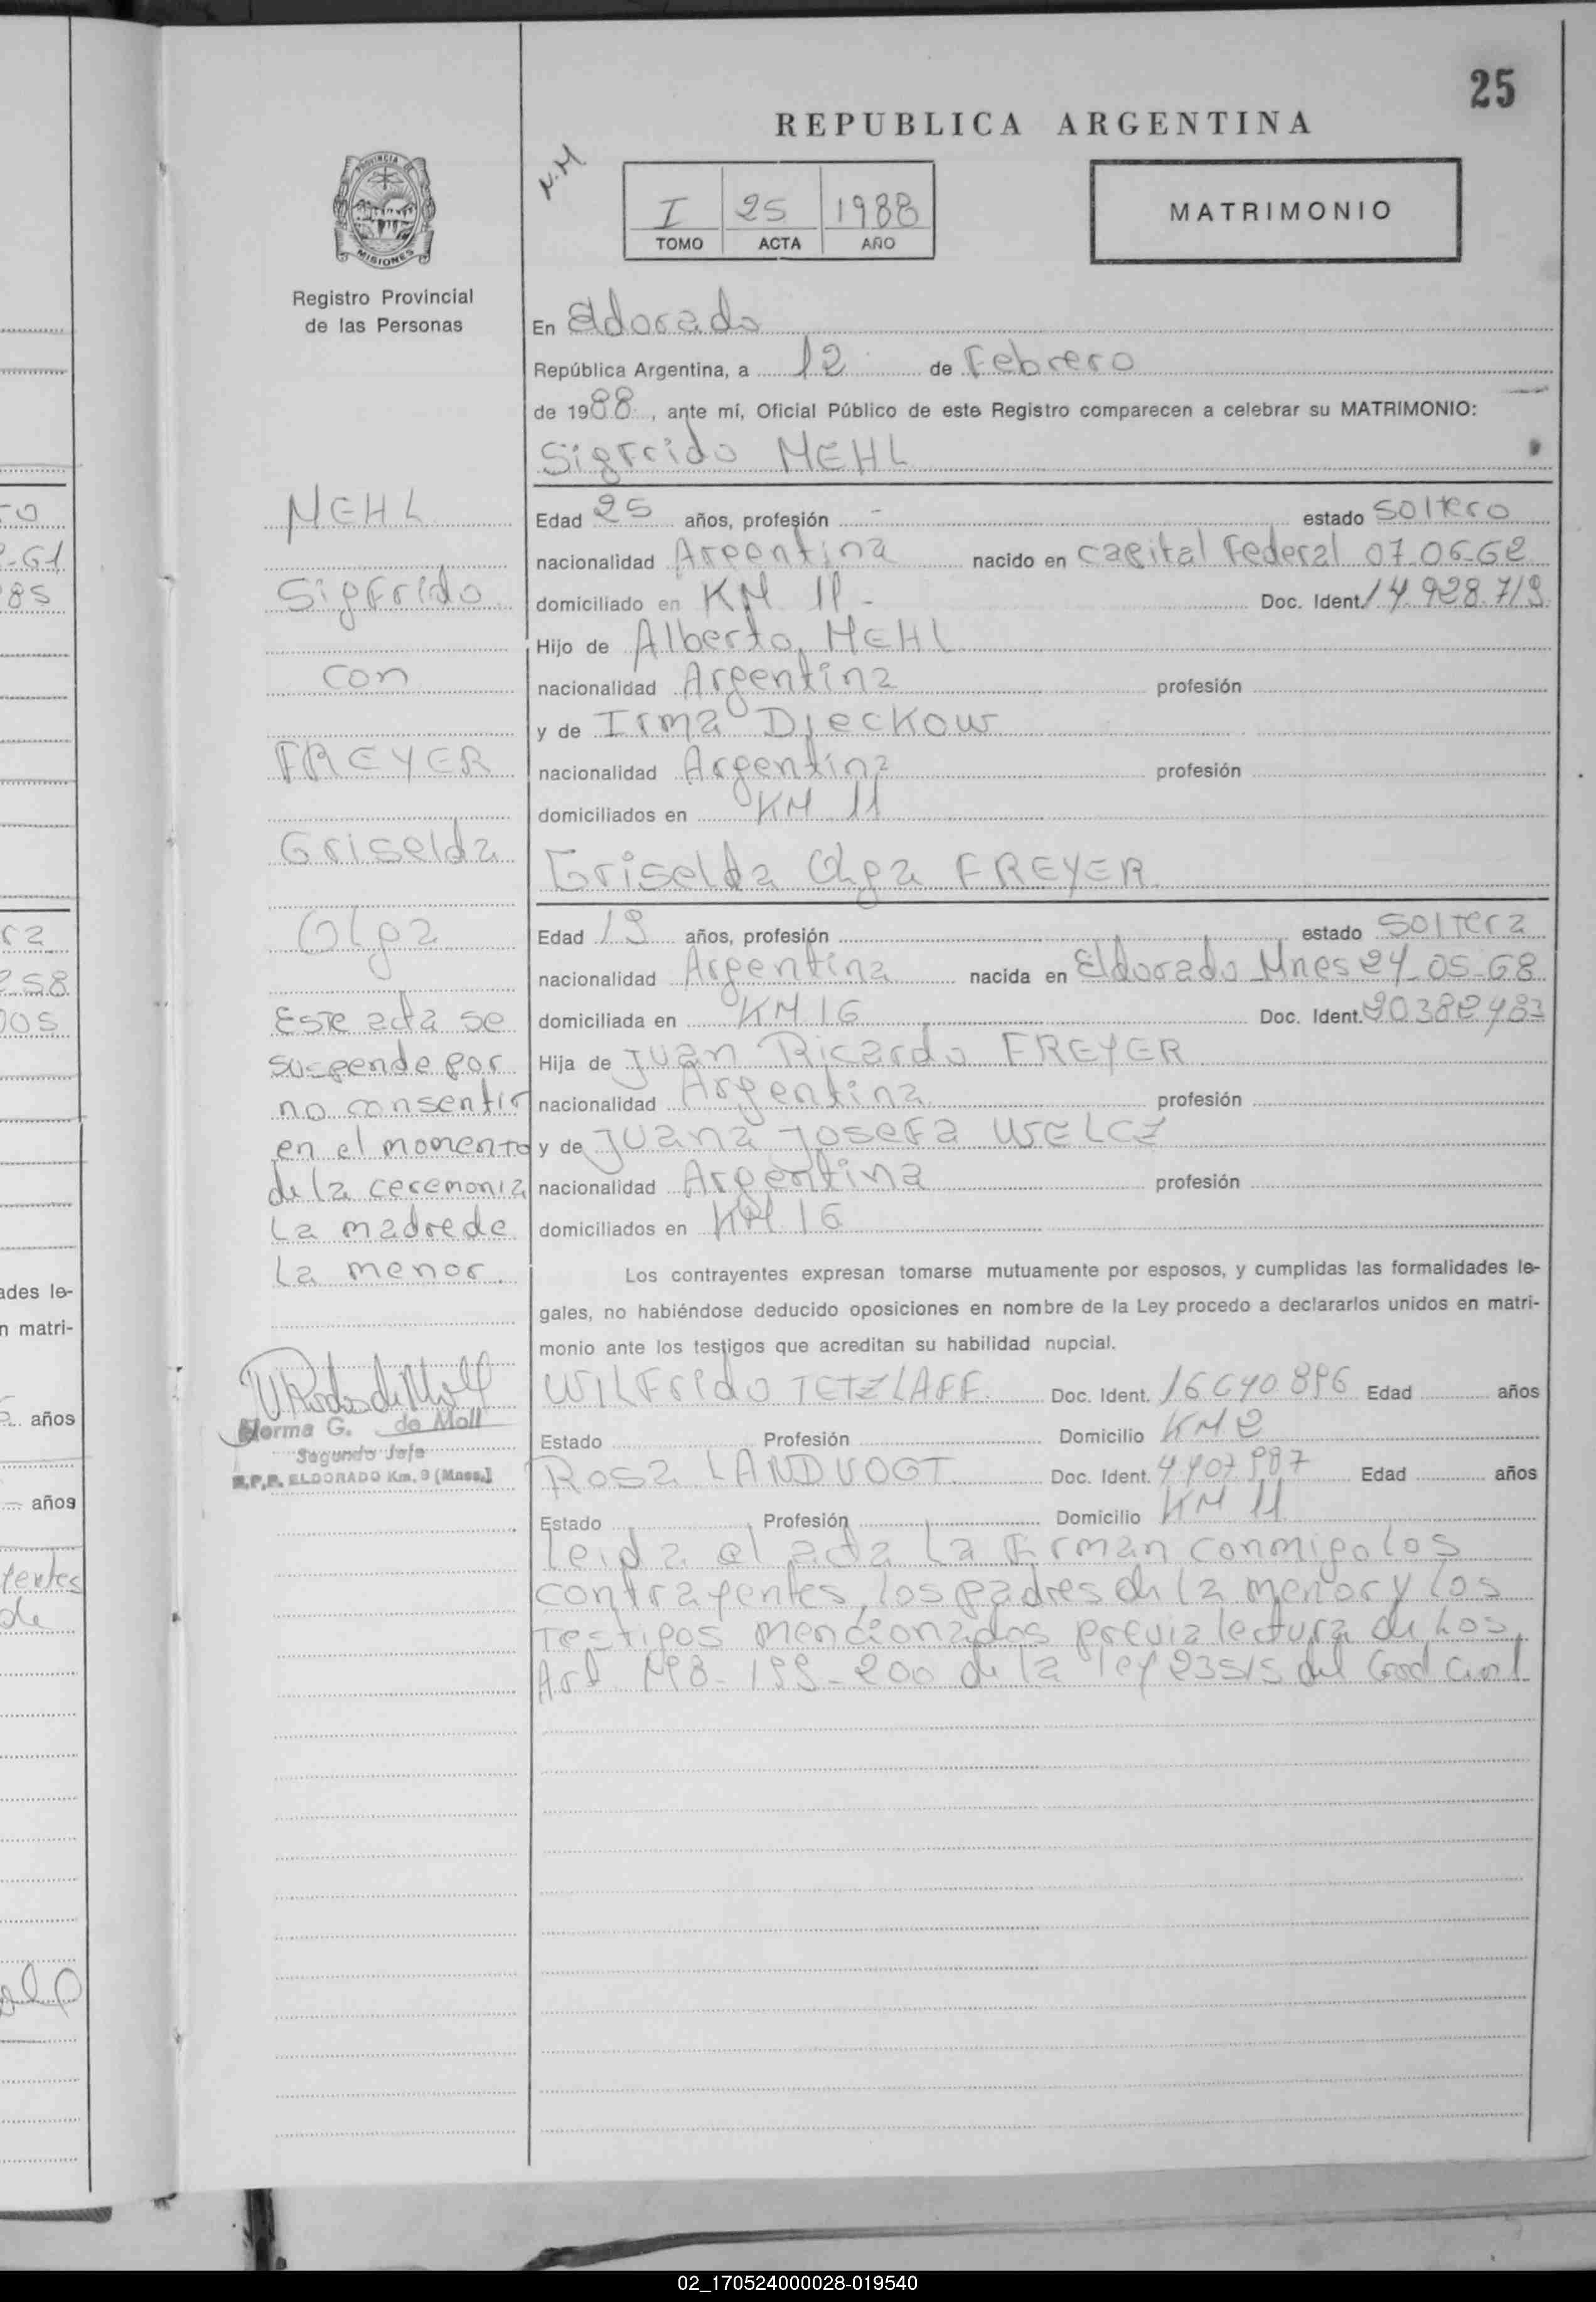 25
REPUBLICA ARGENTINA
N.M
I 25 1988
TOMO ACTA AÑO
MATRIMONIO
PROVINCIA DE
MISIONES
Registro Provincial
de las Personas
En Eldorado
República Argentina, a 12 de Febrero
de 1988, ante mí, Oficial Público de este Registro comparecen a celebrar su MATRIMONIO:
Sigfrido MEHL
Edad 25 años, profesión - estado soltero
nacionalidad Argentina nacido en capital Federal 07-06-62
domiciliado en KM 11 - Doc. Ident. 14.928.719
Hijo de Alberto, MEHL
nacionalidad Argentina profesión
y de Irma Djeckow
nacionalidad Argentina profesión
domiciliados en KM 11
Griselda Olga FREYER
Edad 19 años, profesión estado soltera
nacionalidad Argentina nacida en Eldorado Mnes 24-05-68
domiciliada en KM 16 Doc. Ident. 20382483
Hija de Juan Ricardo FREYER
nacionalidad Argentina profesión
y de Juana Josefa WELCZ
nacionalidad Argentina profesión
domiciliados en KM 16
Los contrayentes expresan tomarse mutuamente por esposos, y cumplidas las formalidades le-
gales, no habiéndose deducido oposiciones en nombre de la Ley procedo a declararlos unidos en matri-
monio ante los testigos que acreditan su habilidad nupcial.
WILFrido TETZLAFF Doc. Ident. 16640896 Edad años
Estado Profesión Domicilio KM 2
Rosa LANDVOGT Doc. Ident. 4407987 Edad años
Estado Profesión Domicilio KM 11
Leida el acta la firman conmigo los
contrayentes, los padres de la menor y los
testigos mencionados previa lectura de los
Art 198-199-200 de la ley 23515 del Cod Civil
MEHL
Sigfrido
con
FREYER
Griselda
Olga
Este acta se
suspende por
no consentir
en el momento
de la ceremonia
La madre de
La menor.
Norma G. de Moll
Segundo Jefe
R.P.P. ELDORADO Km. 9 (Mnes.)
ades le-
n matri-
años
años
02_170524000028-019540